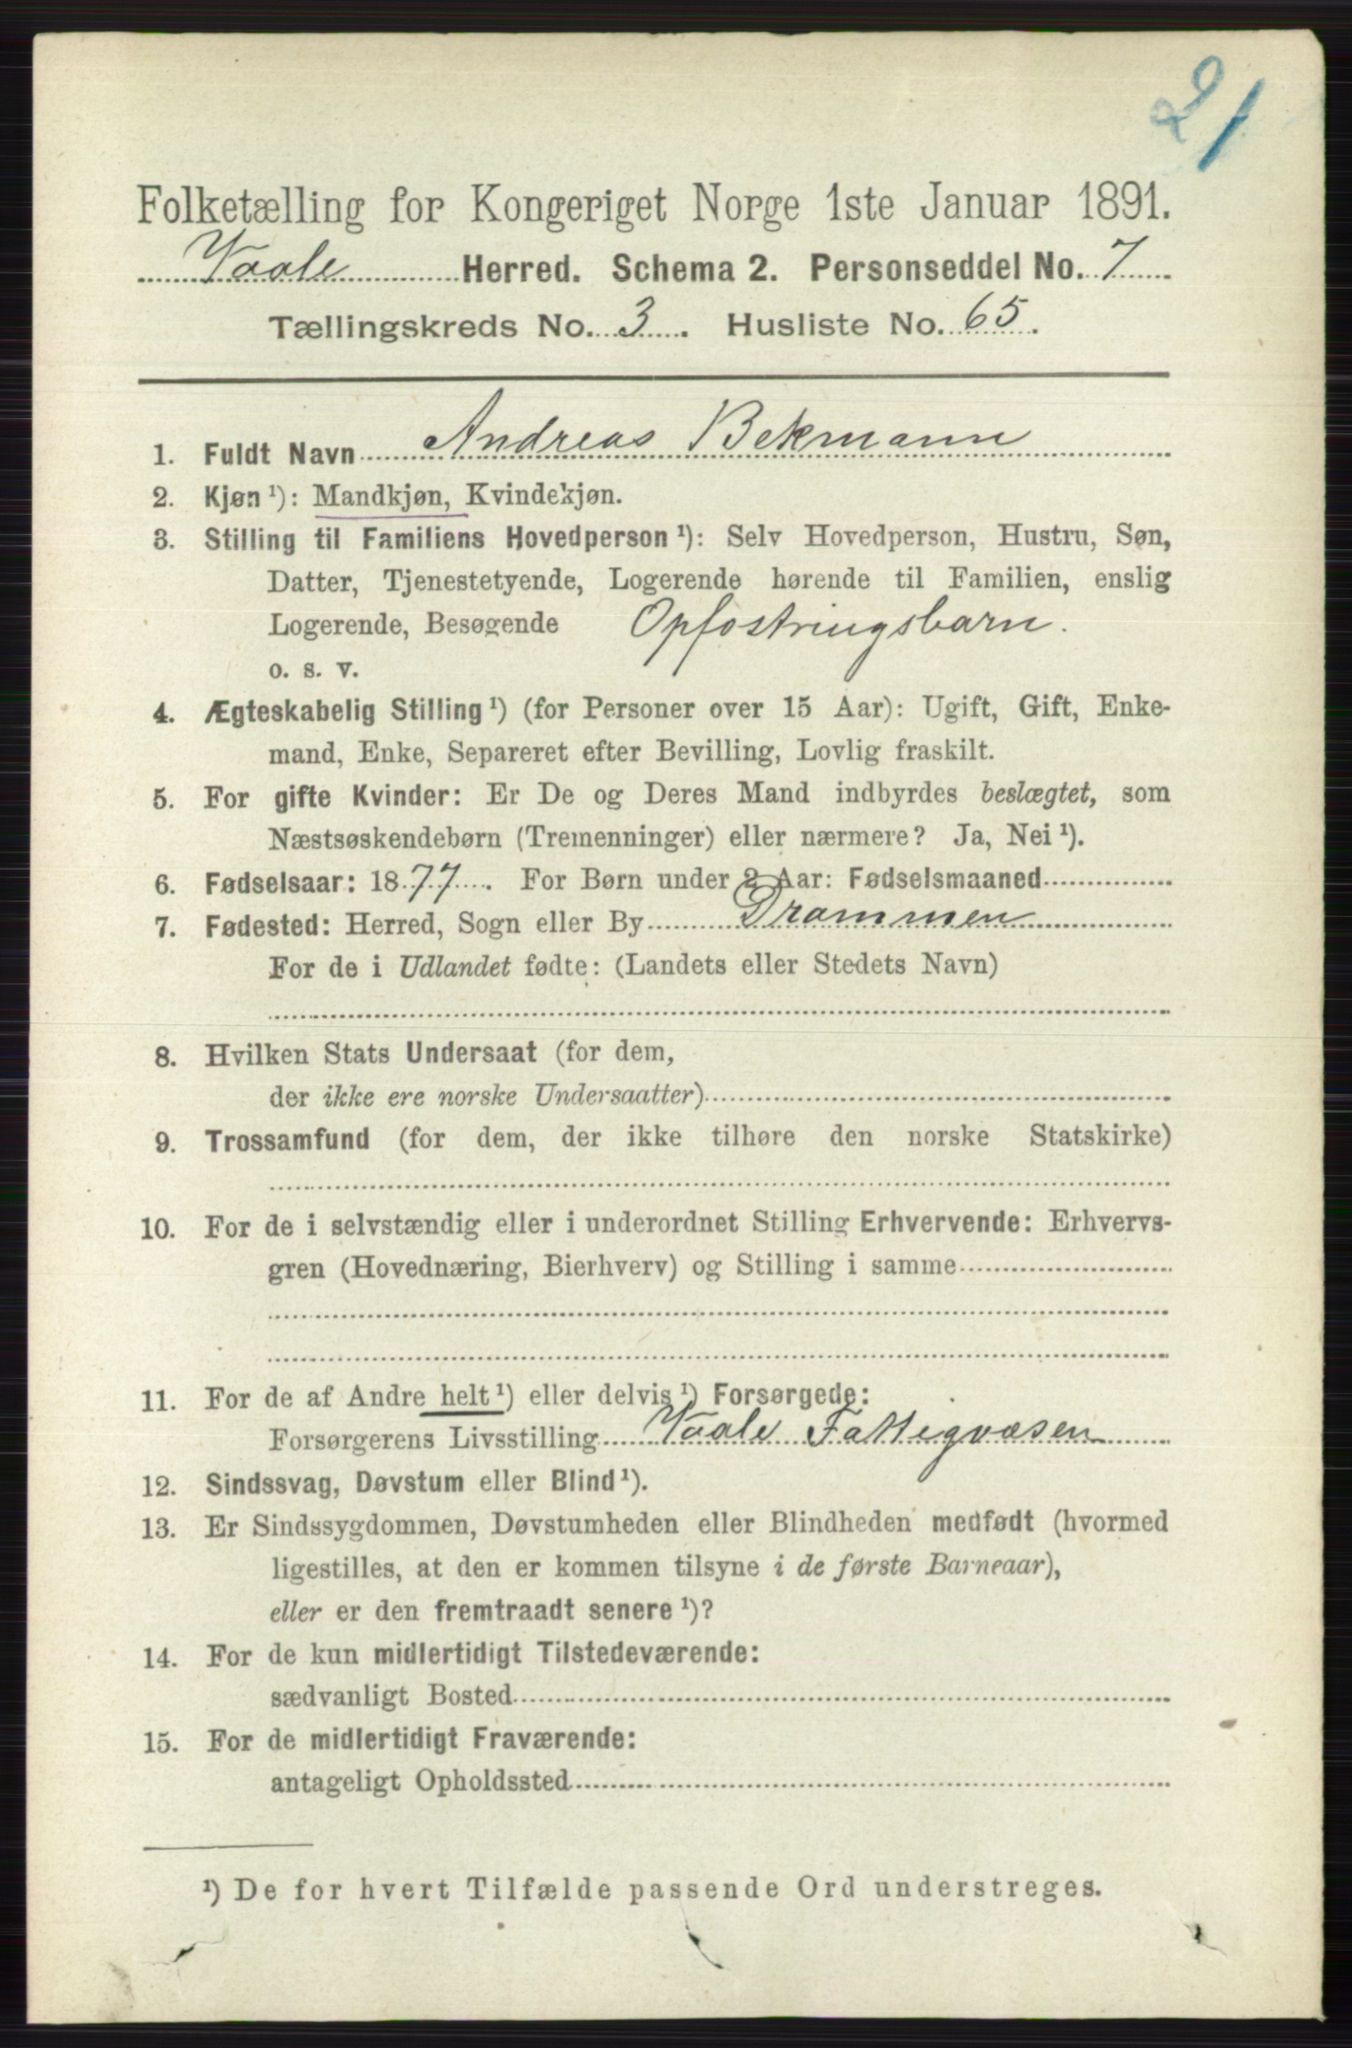 21
Folketælling for Kongeriget Norge 1ste Januar 1891.
Vaale Herred. Schema 2. Personseddel No. 7
Tællingskreds No. 3. Husliste No. 65.
1. Fuldt Navn Andreas Bekmann
2. Kjøn ¹): Mandkjøn, Kvindekjøn.
3. Stilling til Familiens Hovedperson ¹): Selv Hovedperson, Hustru, Søn,
Datter, Tjenestetyende, Logerende hørende til Familien, enslig
Logerende, Besøgende Opfostringsbarn.
o. s. v.
4. Ægteskabelig Stilling ¹) (for Personer over 15 Aar): Ugift, Gift, Enke-
mand, Enke, Separeret efter Bevilling, Lovlig fraskilt.
5. For gifte Kvinder: Er De og Deres Mand indbyrdes beslægtet, som
Næstsøskendebørn (Tremenninger) eller nærmere? Ja, Nei ¹).
6. Fødselsaar: 1877. For Børn under 2 Aar: Fødselsmaaned
7. Fødested: Herred, Sogn eller By Drammen
For de i Udlandet fødte: (Landets eller Stedets Navn)
8. Hvilken Stats Undersaat (for dem,
der ikke ere norske Undersaatter)
9. Trossamfund (for dem, der ikke tilhøre den norske Statskirke)
10. For de i selvstændig eller i underordnet Stilling Erhvervende: Erhvervs-
gren (Hovednæring, Bierhverv) og Stilling i samme
11. For de af Andre helt ¹) eller delvis ¹) Forsørgede:
Forsørgerens Livsstilling Vaale Fattigvæsen
12. Sindssvag, Døvstum eller Blind ¹).
13. Er Sindssygdommen, Døvstumheden eller Blindheden medfødt (hvormed
ligestilles, at den er kommen tilsyne i de første Barneaar),
eller er den fremtraadt senere ¹)?
14. For de kun midlertidigt Tilstedeværende:
sædvanligt Bosted
15. For de midlertidigt Fraværende:
antageligt Opholdssted
¹) De for hvert Tilfælde passende Ord understreges.